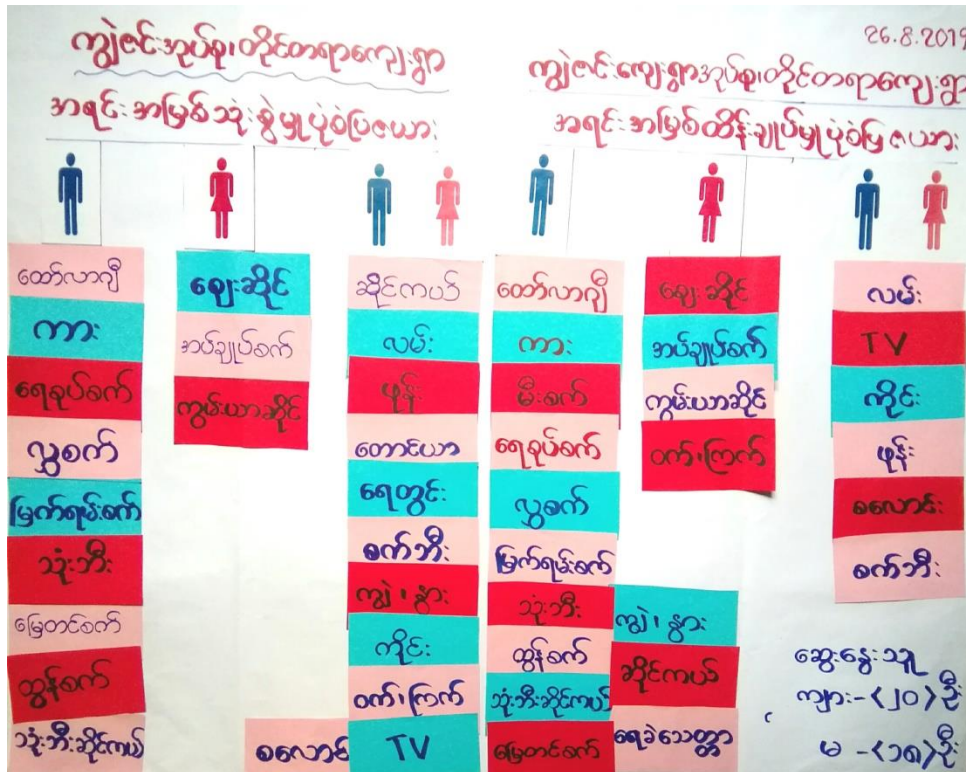 ကျွဲဇင်းအုပ်စု၊တိုင်တရာကျေးရွာ
အရင်းအမြစ်သုံးစွဲမှုပုံစံပြဇယား
26.8.2019
ကျွဲဇင်းကျေးရွာအုပ်စု၊တိုင်တရာကျေးရွာ
အရင်းအမြစ်ထိန်းချုပ်မှုပုံစံပြဇယား
ထော်လာဂျီ
ကား
ရေစုပ်စက်
လွှစက်
မြက်ရမ်းစက်
သုံးဘီး
မြေတင်စက်
ထွန်စက်
သုံးဘီးဆိုင်ကယ်
ဈေးဆိုင်
အပ်ချုပ်စက်
ကွမ်းယာဆိုင်
ဆိုင်ကယ်
လမ်း
ဖုန်း
တောင်ယာ
ရေတွင်း
စက်ဘီး
ကျွဲ၊နွား
ကိုင်း
ဝက်၊ကြက်
စလောင်း
TV
ထော်လာဂျီ
ကား
မီးစက်
ရေစုပ်စက်
လွှစက်
မြက်ရမ်းစက်
သုံးဘီး
ထွန်စက်
သုံးဘီးဆိုင်ကယ်
မြေတင်စက်
ကျွဲ၊နွား
ဆိုင်ကယ်
ရေခဲသေတ္တာ
ဈေးဆိုင်
အပ်ချုပ်စက်
ကွမ်းယာဆိုင်
ဝက်၊ကြက်
လမ်း
TV
ကိုင်း
ဖုန်း
စလောင်း
စက်ဘီး
ဆွေးနွေးသူ
ကျား-<၂၀>ဦး
မ -<၁၈>ဦး